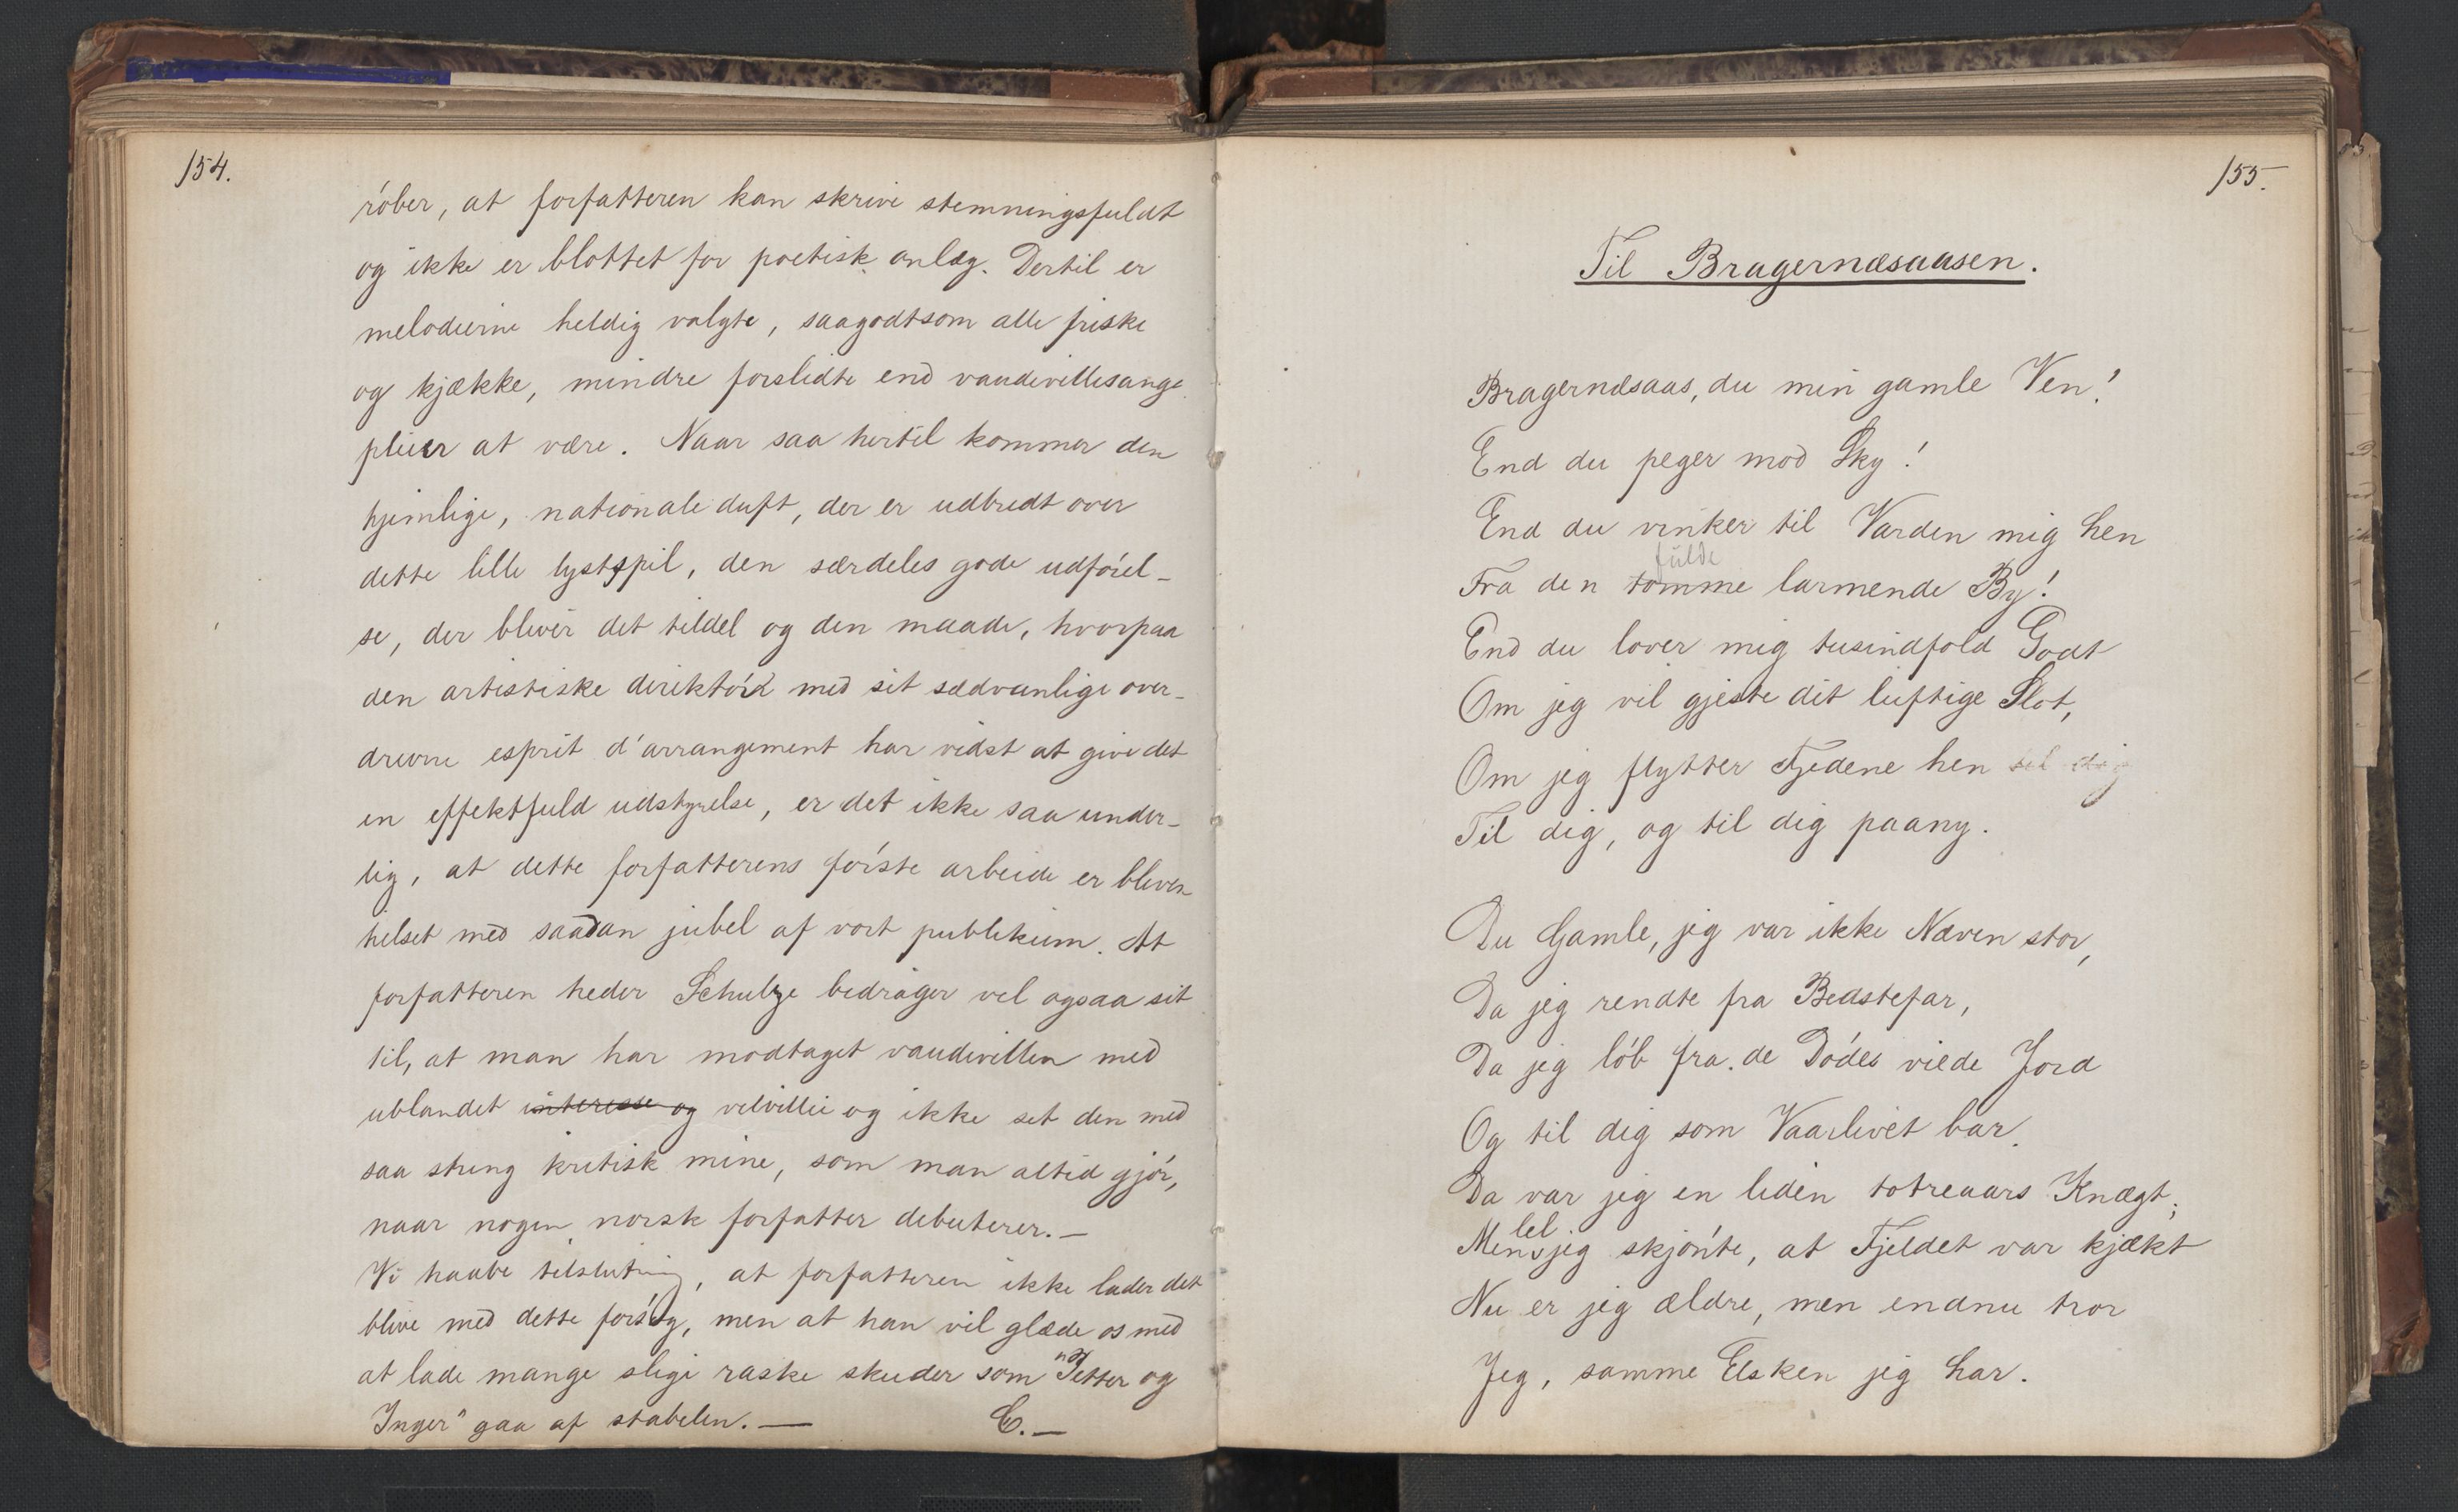 154.
røber, at forfatteren kan skrive stemningsfuldt
og ikke er blottet for poetisk anlæg. Dertil er
melodierne heldig valgte, saagodtsom alle friske
og kjække, mindre forslidte end vaudevillesange
pleier at være. Naar saa hertil kommer den
hjemlige, nationale duft, der er udbredt over
dette lille lystspil, den særdeles gode udførel-
se, der bliver det tildel og den maade, hvorpaa
den artistiske direktør med sit sædvanlige over-
drevne esprit d'arrangement har vidst at give det
en effektfuld udstyrelse, er det ikke saa under-
lig, at dette forfatterens første arbeide er bleven
hilset med saadan jubel af vort publikum. At
forfatteren heder Schulze bedrager vel ogsaa sit
til, at man har modtaget vaudevillen med
ublandet interesse og velvillie og ikke set den med
saa streng kritisk mine, som man altid gjør,
naar nogen norsk forfatter debuterer. —
Vi haabe tilslutning, at forfatteren ikke lader det
blive med dette forsøg, men at han vil glæde os med
at lade mange slige raske skuder som "Petter og
Inger" gaa af stabelen. — C. —
155.
Til Bragernæsaasen.
Bragernæsaas, du min gamle Ven!
End du peger mod Sky!
End du vinker til Varden mig hen
fulde
Fra den tomme larmende By!
End du lover mig tusindfold Godt
Om jeg vil gjeste dit luftige Slot,
Om jeg flytter Fjedene hen til dig
Til dig, og til dig paany.
Du Gamle, jeg var ikke Næven stor,
Da jeg rendte fra Bedstefar,
Da jeg løb fra de Dødes viede Jord
Og til dig som Vaarlivet bar.
Da var jeg en liden totreaars Knægt;
lel
Men jeg skjønte, at Fjeldet var kjækt
Nu er jeg ældre, men endnu tror
Jeg, samme Elsken jeg har.